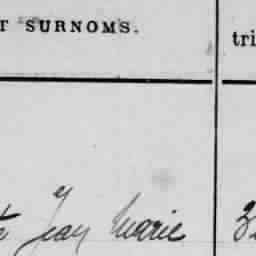 T SURNOMS. tri
t Jean Marie 3